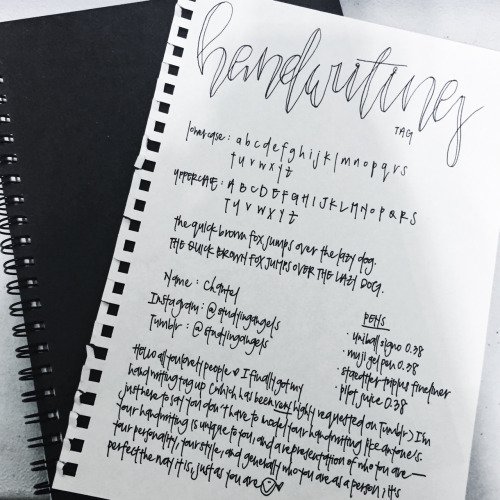 handwriting
TAG
lowercase : a b c d e f g h i j k l m n o p q r s
t u v w x y z
UPPERCASE : A B C D E F G H I J K L M N O P Q R S
T U V W X Y Z
the quick brown fox jumps over the lazy dog.
THE QUICK BROWN FOX JUMPS OVER THE LAZY DOG.
Name : Chantel
Instagram : @studyingangels
Tumblr : @studyingangels
PENS
· uniball signo 0.38
· muji gel pen 0.38
· staedtler triplus fineliner
· pilot juice 0.38
Hello all you lovely people ♥ I finally got my
handwriting tag up (which has been very highly requested on Tumblr) I'm
just here to say you don't have to model your handwriting like anyone's.
Your handwriting is unique to you, and a representation of who you are —
your personality, your style, and generally who you are as a person, it's
perfect the way it is, just as you are